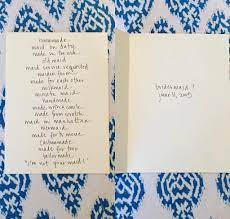 homemade
maid on duty
made in the usa
old maid
maid service requested
maiden form
made for each other
milkmaid
minute maid
handmade
made with a smile
made from scratch
maid in manhattan
mermaid
made for to move
custommade
made for two
tailor made
"i'm not your maid!"
bridesmaid?
june 11, 2005